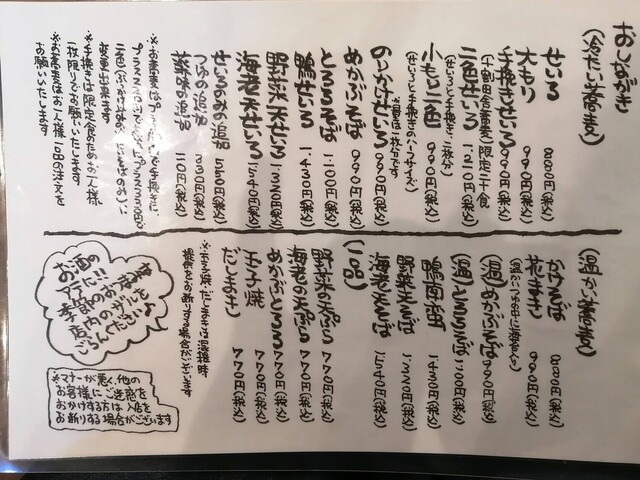 おしながき
(冷たい蕎麦)
せいろ 880円(税込)
大もり 990円(税込)
手挽きせいろ 990円(税込)
(十割田舎蕎麦/限定二十食)
二色せいろ 1.210円(税込)
(せいろと手挽き、二枚分)
小もり二色 990円(税込)
(せいろと手挽きのハーフサイズ)
せいろ 990円(税込)
※量は1枚分です
めかぶそば 990円(税込)
とろろそば 1.100円(税込)
鴨せいろ 1.430円(税込)
野菜天せいろ 1.320円(税込)
海老天せいろ 1.540円(税込)
せいろのみの追加 550円(税込)
つゆの追加 330円(税込)
の追加 110円(税込)
※お蕎麦はプラス
二色
変更出来ます
※手挽きは限定食のためお一人様
一枚限りでお願いいたします
※お蕎麦はお一人様一品の注文を
お願いいたします
(温かい蕎麦)
かけそば 880円(税込)
花まき 990円(税込)
(温)めかぶそば 990円(税込)
(温)とろろそば 1.100円(税込)
鴨南蛮 1.430円(税込)
野菜天そば 1.320円(税込)
海老天そば 1.540円(税込)
(一品)
野菜の天ぷら 770円(税込)
海老の天ぷら 770円(税込)
めかぶとろろ 770円(税込)
玉子焼 770円(税込)
だしまき 770円(税込)
※玉子焼・だしまきは混雑時
提供をお断りする場合がございます
お酒の
アテに!!
季節のお蕎麦♪
店内のパネルを
ごらんください
※マナーが悪く他の
お客様にご迷惑を
おかけする方は入店を
お断りする場合がございます